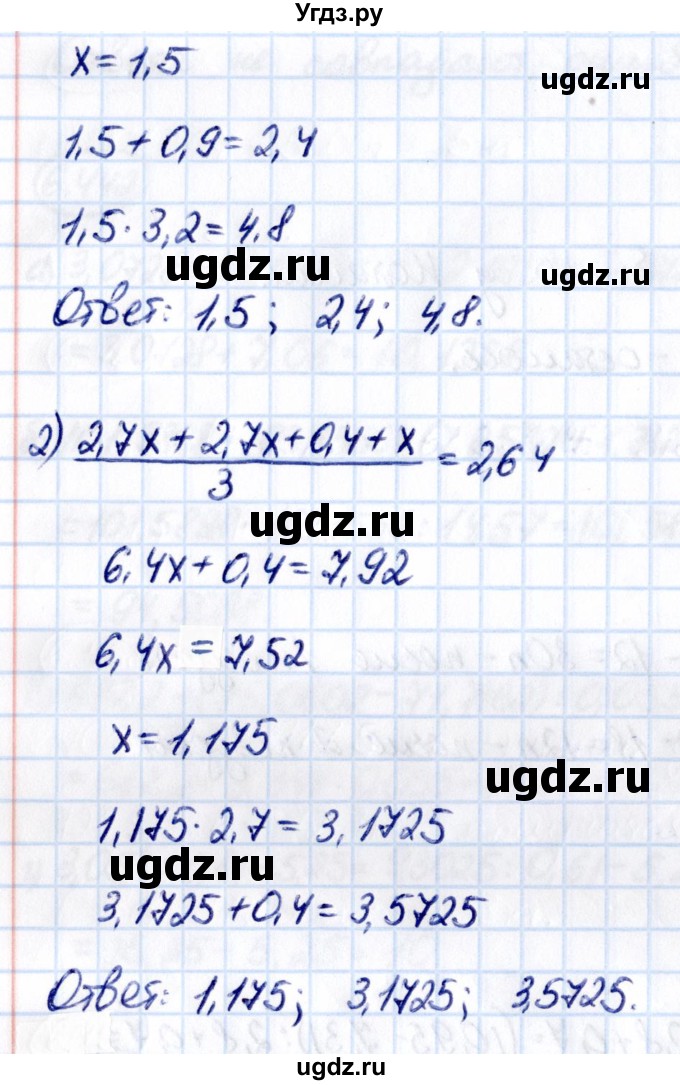 Угдз.ру
x = 1,5
ugdz.ru
1,5 + 0,9 = 2,4
1,5 · 3,2 = 4,8
ugdz.ru
ugdz.ru
Ответ: 1,5; 2,4; 4,8.
2) (2,7x + 2,7x + 0,4 + x)/3 = 2,64
ugdz.ru
6,4x + 0,4 = 7,92
6,4x = 7,52
x = 1,175
ugdz.ru
1,175 · 2,7 = 3,1725
ugdz.ru
3,1725 + 0,4 = 3,5725
Ответ: 1,175; 3,1725; 3,5725.
ugdz.ru